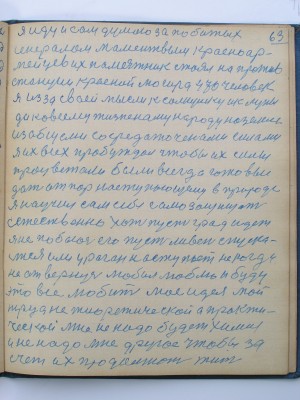 63
я иду и сам думаю за побитых
генералом Мамонтвым красноар-
мейцев их паметник стоял на против
станции красной могила 430 человек
я из за своей мысли к солнышку и к луни
до ковсему жизненому народу на земле
из общими сосредаточеными силами
я их всех пробуждаю чтобы их силы
процветали были всегда готовы
дат отпор наступающиму в природе
я научил сам себя самозащиту от
естественно хот пуст град идет
я не побоюс его пуст ливен спуска-
ется или ураган наступает некогда
не отвернус любил люблю и буду
это все любит мое идея мой
труд не тиоретической а практи-
ческой мне не надо будет химии
и не надо мне другое чтобы за
счет их продолжат жит